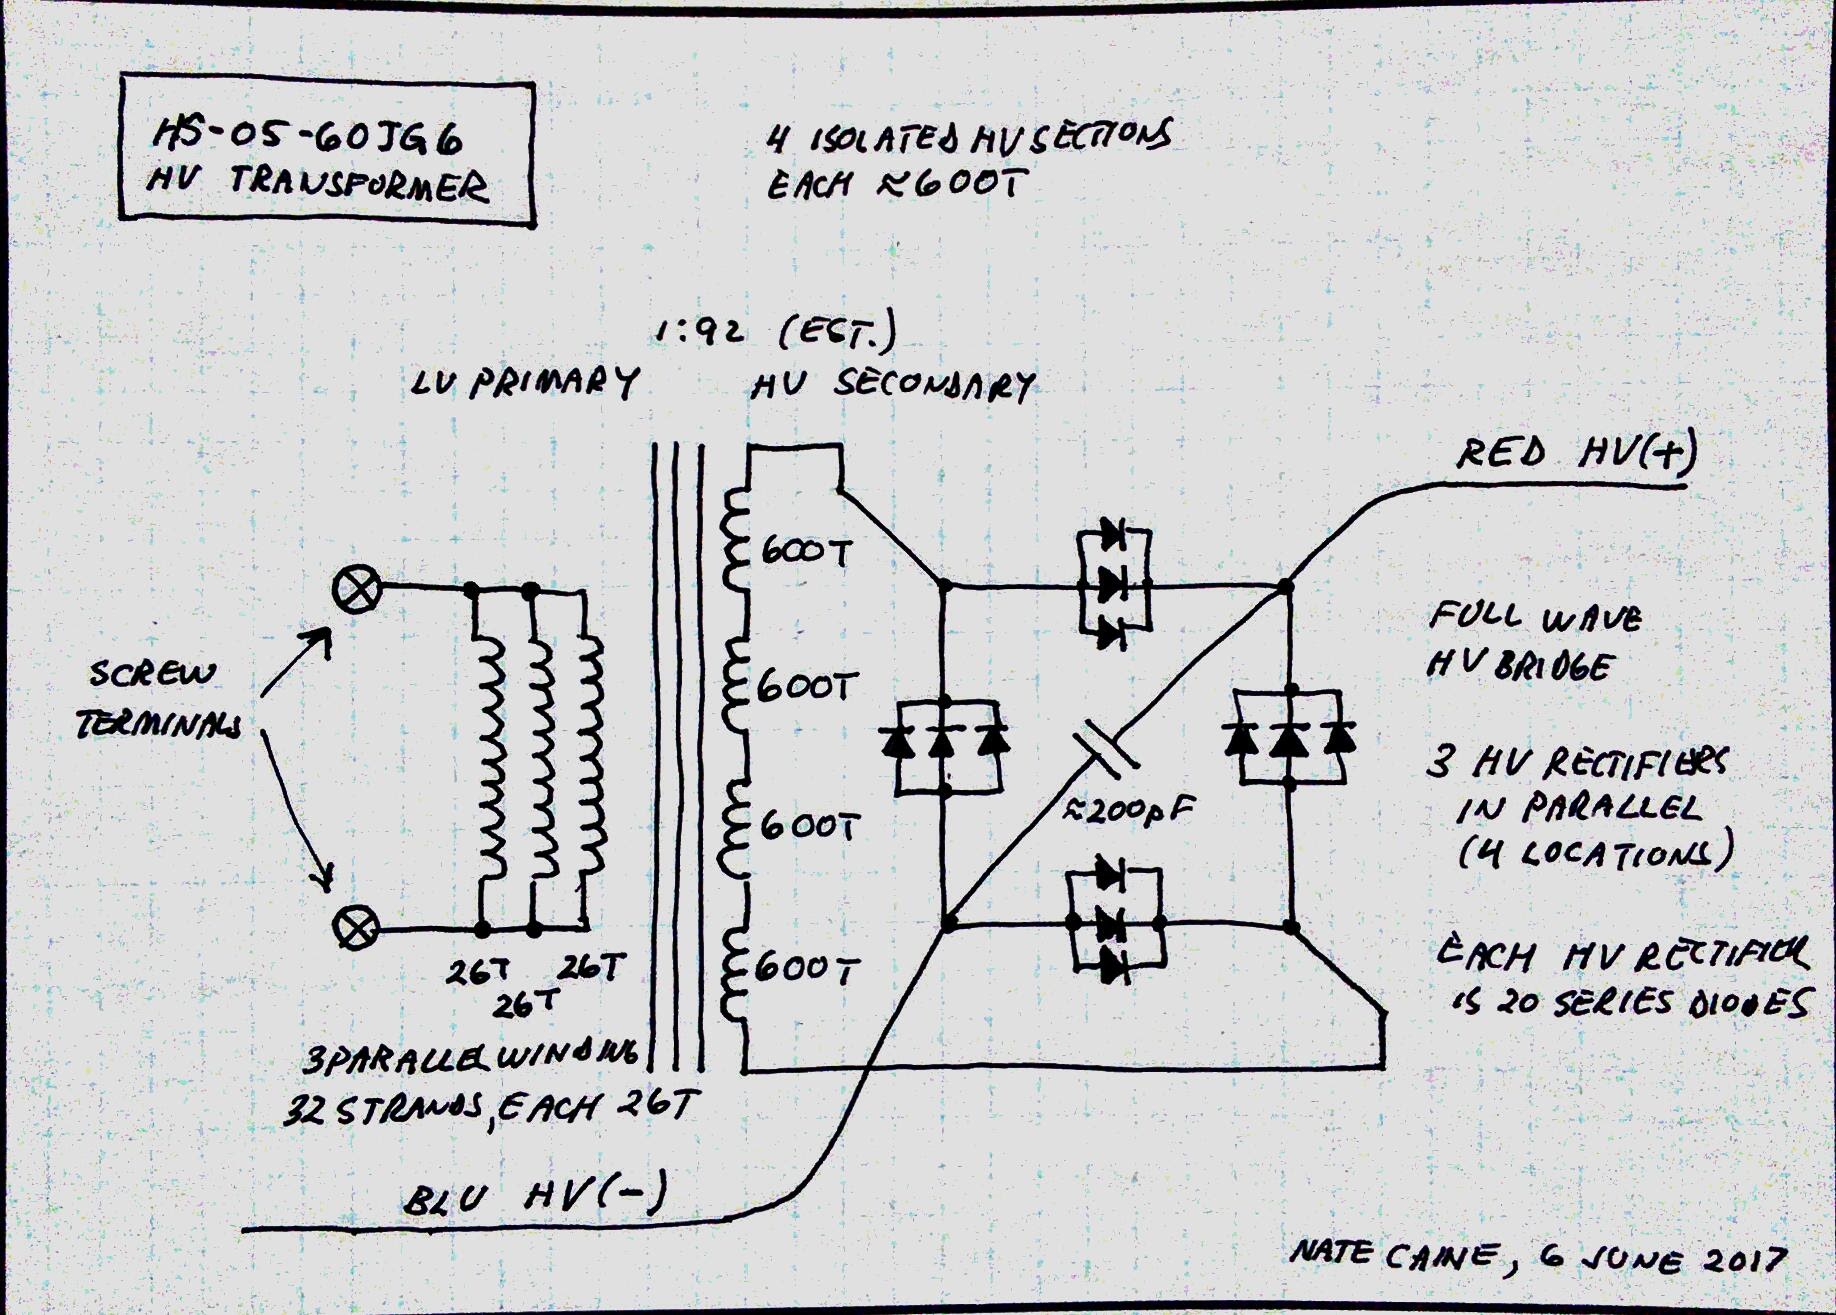 HS-05-60JG6
HV TRANSFORMER
4 ISOLATED HV SECTIONS
EACH ≈600T
1:92 (EST.)
LV PRIMARY
HV SECONDARY
RED HV(+)
600T
600T
600T
600T
SCREW
TERMINALS
≈200pF
FULL WAVE
HV BRIDGE
3 HV RECTIFIERS
IN PARALLEL
(4 LOCATIONS)
EACH HV RECTIFIER
IS 20 SERIES DIODES
26T
26T
26T
3 PARALLEL WINDING
32 STRANDS, EACH 26T
BLU HV(-)
NATE CAINE, 6 JUNE 2017